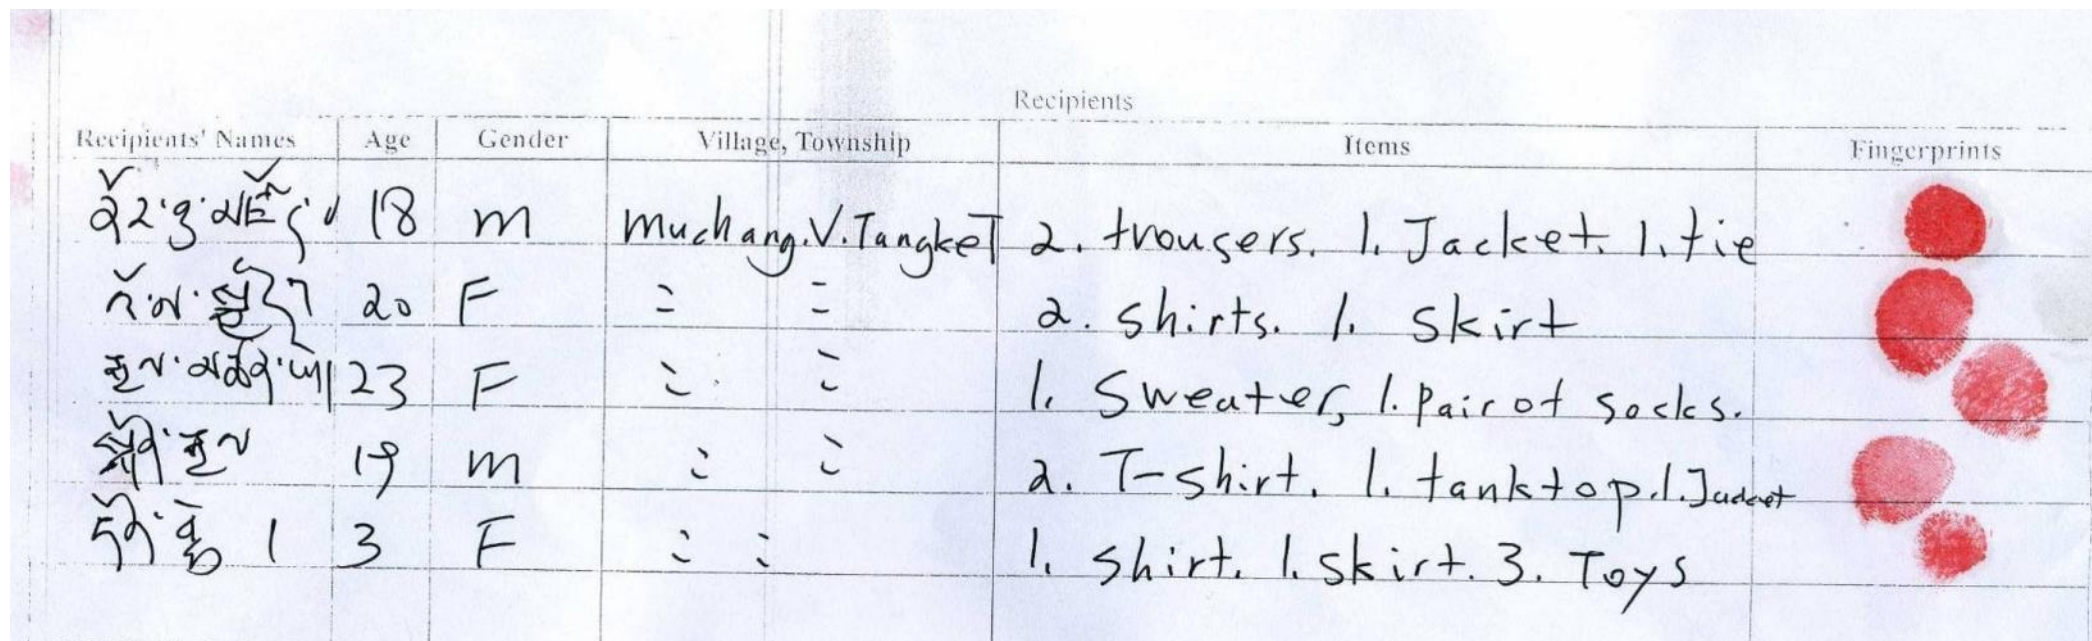 Recipients
Recipients' Names Age Gender Village, Township Items Fingerprints
18 m Muchang.V.TangkeT 2. trousers. 1. Jacket. 1. tie
20 F 〃 〃 2. shirts. 1. skirt
23 F 〃 〃 1. Sweater, 1. pair of socks.
19 m 〃 〃 2. T-shirt. 1. tanktop. 1. Jacket
3 F 〃 〃 1. shirt. 1. skirt. 3. Toys